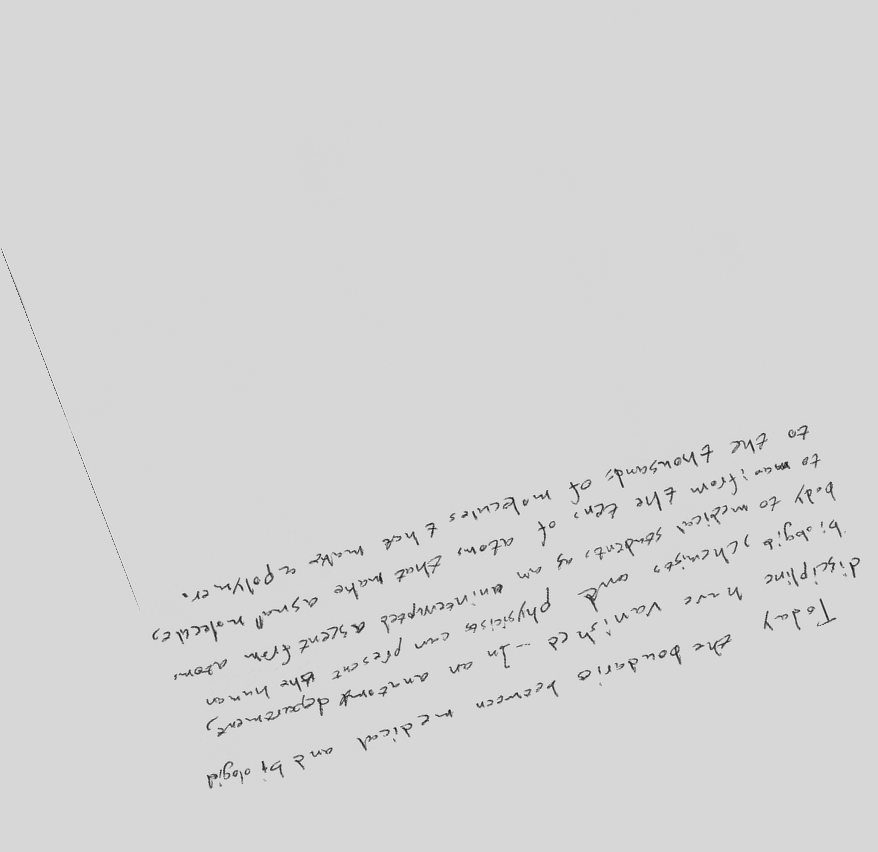 Today the boundaris between medical and biologial
discipline have vanished - In an anatomy department,
biologis, chemists, and physicists can present the human
body to medical students as an uninterrupted ascent from atoms
to man: from the tens of atoms that make a small molecules
to the thousands of molecules that make a polymer.